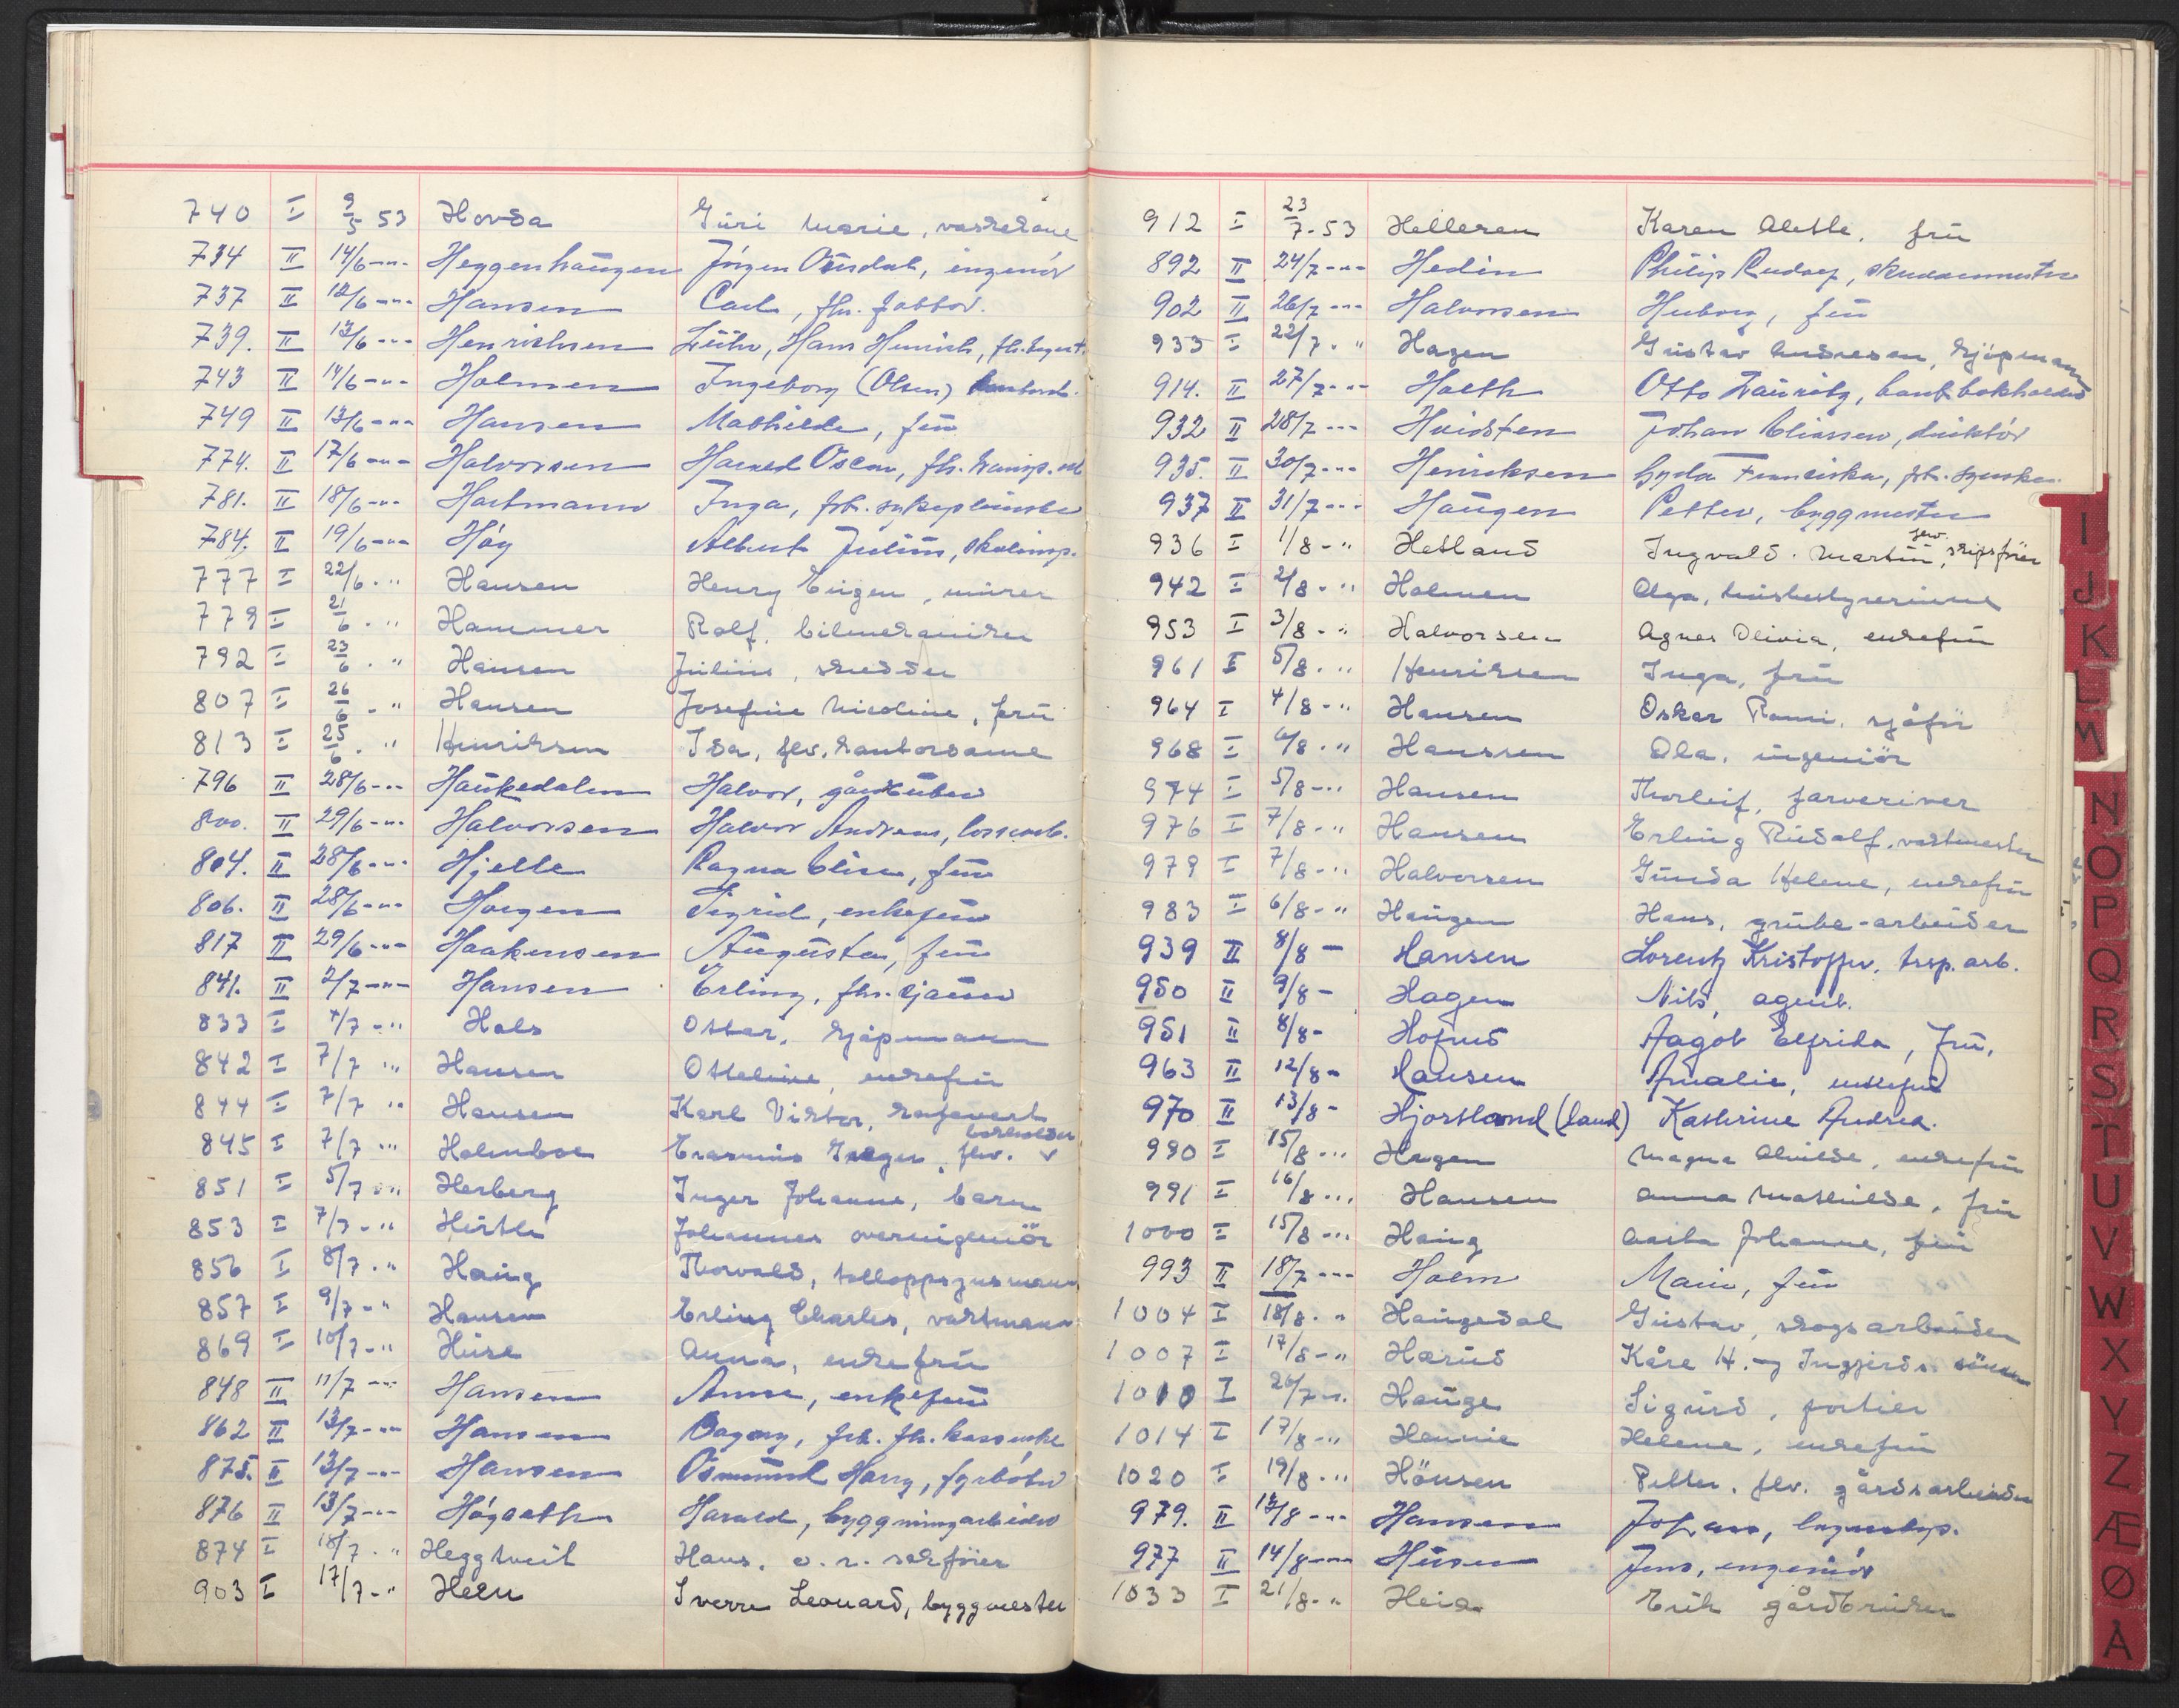 740 I 9/5 53 Hovda Guri Marie, vaskekone
734 II 14/6 -"- Heggenhaugen Jörgen Omsdal, ingeniör
737 II 12/6 -"- Hansen Carl, fhv.
739. II 13/6 -"- Henrichsen Lühr, Hans Henrich, fh. agent.
743 II 14/6 -"- Holmen Ingeborg (Olsen)
749 II 13/6 -"- Hansen Mathilde, frü
774. II 17/6 -"- Halvorsen Harald Oscar, fh.
781. II 18/6 -"- Hartmann Inga, fhv. sykepleierske
784. II 19/6 -"- Höy Albert Julius, skoleinsp.
777 I 22/6 - " Hansen Henry Eugen, murer
779 I 21/6 - " Hammer Rolf, bilmekaniker
792 I 23/6 - " Hansen Julius, skredder
807 I 26/6 - " Hansen Josefine Nicoline, frü
813 I 25/6 - " Henriksen Isa, flv. kontordame
796 II 28/6 -"- Haukedalen Halvor, gårdbruker
800. II 29/6 -"- Halvorsen Halvor Andreas, lossearb.
804. II 28/6 -"- Hjelle Ragna Elise, frü
806. II 28/6 -"- Hoegen Sigrid, enkefrü
817 II 29/6 -"- Haakensen Augusta, frü
841. II 2/7 -"- Hansen Erling, fhv. sjauer
833 I 4/7 - " Hals Ottar, kjöpmann
842 I 7/7 " Hansen Otteline, enkefrü
844 I 7/7 " Hansen Karl Viktor, kafevert
845 I 7/7 " Holmboe Erasmus Greger, flv. bokholder
851 I 5/7 - " Herberg Inger Johanne, barn
853 I 7/7 - " Johannes overingeniör
856 I 8/7 - " Haug Thorvald, tolloppsynsmann
857 I 9/7 - " Hansen Erling Charles, vaktmann
869 I 10/7 - " Huse Anna, enkefrü
848 II 11/7 -"- Hansen Anne, enkefrü
862 II 13/7 -"- Hansen Dagny, frk. fh.
875. II 13/7 -"- Hansen Osmund Harry, fyrböter
876 II 13/7 -"- Högseth Harald, byggningsarbeider
874 I 18/7 - " Heggtveit Hans, o.r. sakförer
903 I 17/7 - " Helu Sverre Leonard, byggmester
912 I 23/7 - 53 Helleren Karen Aletle, frü
892 II 24/7 -"- Hedin Philip Rudolf,
902 II 26/7 -"- Halvorsen Huborg, frü
933 I 22/7 - " Hagen Gustav Andresen, kjöpmann
914. II 27/7 -"- Holth Otto Lauritz, bankbokholder
932 II 28/7 -"- Hvidsten Johan Eliassen, direktör
935. II 30/7 -"- Henriksen Gyda Franciska, frk. syerske.
937 II 31/7 -"- Haugen Petter, byggmester
936 I 1/8 - " Hetland Ingvald Martin, flv. skipsförer
942 I 2/8 - " Holmen Olga, husbestyrerinne
953 I 3/8 - " Halvorsen Agnes Olivia, enkefrü
961 I 5/8 - " Henriksen Inga, frü
964 I 4/8 - " Hansen Oskar Romi, sjåför
968 I 6/8 - " Hanssen Ola, ingeniör
974 I 5/8 - " Hansen Thorleif, farveriver
976 I 7/8 - " Hansen Erling Rudolf, vaktmester
979 I 7/8 - " Halvorsen Gunda Helene, enkefrü
983 I 6/8 - " Haugen Hans, grube-arbeider
939 II 8/8 - Hansen Lorentz Kristoffer, trsp. arb.
950 II 9/8 - Hagen Nils, agent.
951 II 8/8 - Hofnes Aagot Elfrida, Frü.
963 II 12/8 - Hansen Amalie, enkefrü
970 II 13/8 - Hjortland (land) Kathrine Andrea.
990 I 15/8 - " Hagen Magna Alvilde, enkefrü
991 I 16/8 - " Hansen Anna Mathilde, frü
1000 I 15/8 - " Haug Aasta Johanne, frü
993 II 18/7 -"- Holm Marie, frü
1004 I 18/8 - " Haugedal Gustav, skogsarbeider
1007 I 17/8 - " Hærud Kåre H. og Ingjerds sönn
1010 I 26/7 - " Hauge Sigurd, portier
1014 I 17/8 - " Hennie Helene, enkefrü
1020 I 19/8 - " Hönsen Petter, flv. gårdsarbeider
979. II 13/8 -"- Hansen Johan,
977 II 14/8 -"- Husen Jens, ingeniör
1033 I 21/8 - " Heia Erik gårdbruker
I
J
K
L
M
N
O
P
Q
R
S
T
U
V
W
X
Y
Z
Æ
Ø
A